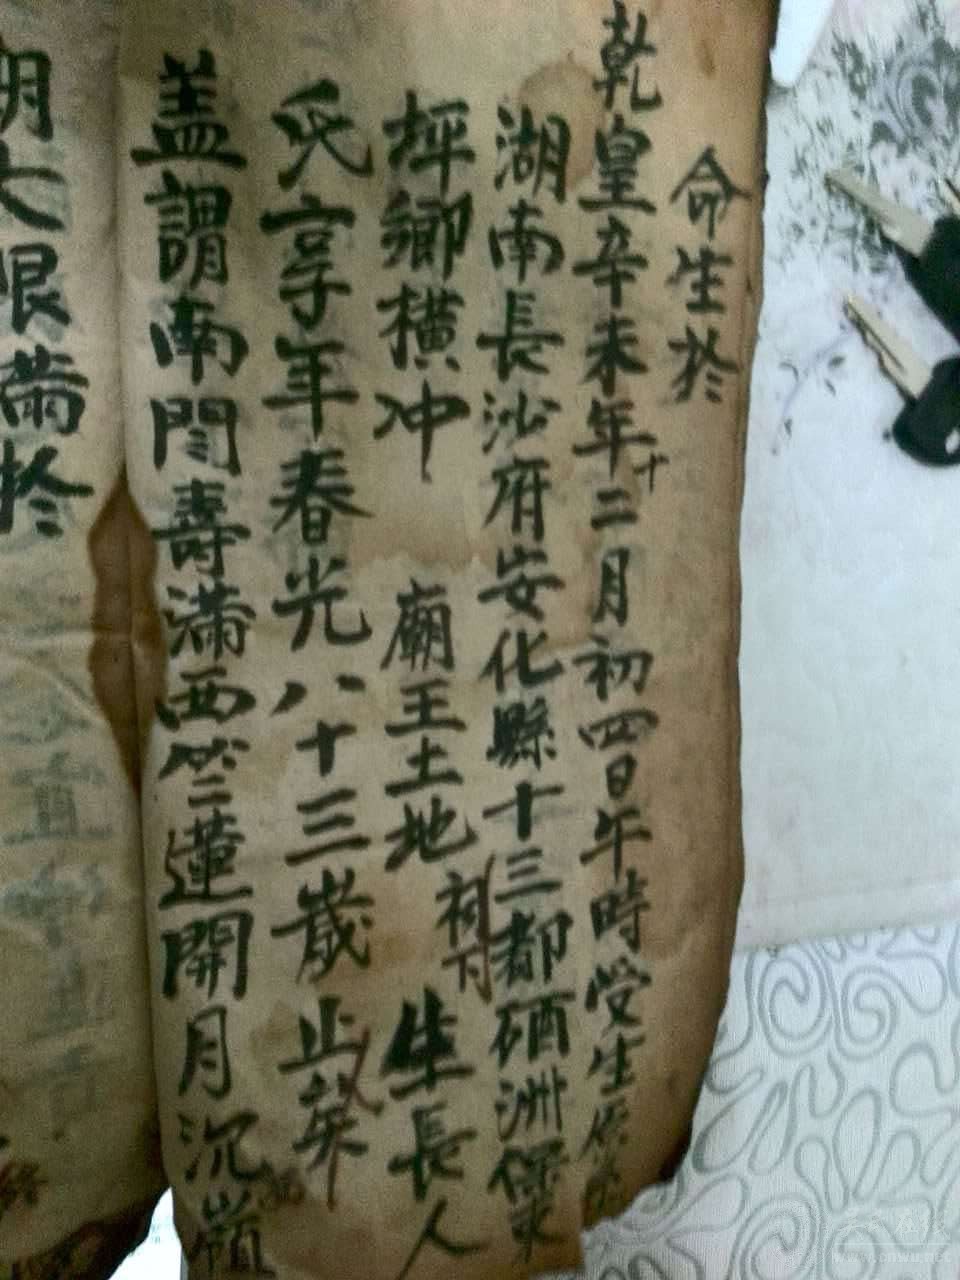 命生於
乾皇辛未年十二月初四日午時受生係
湖南長沙府安化縣十三都硒洲保
坪鄉橫冲 廟王土地祠下生長人
氏享年春光八十三歲止矣
盖謂南閆壽滿西竺蓮開月沉嶺
大限满於